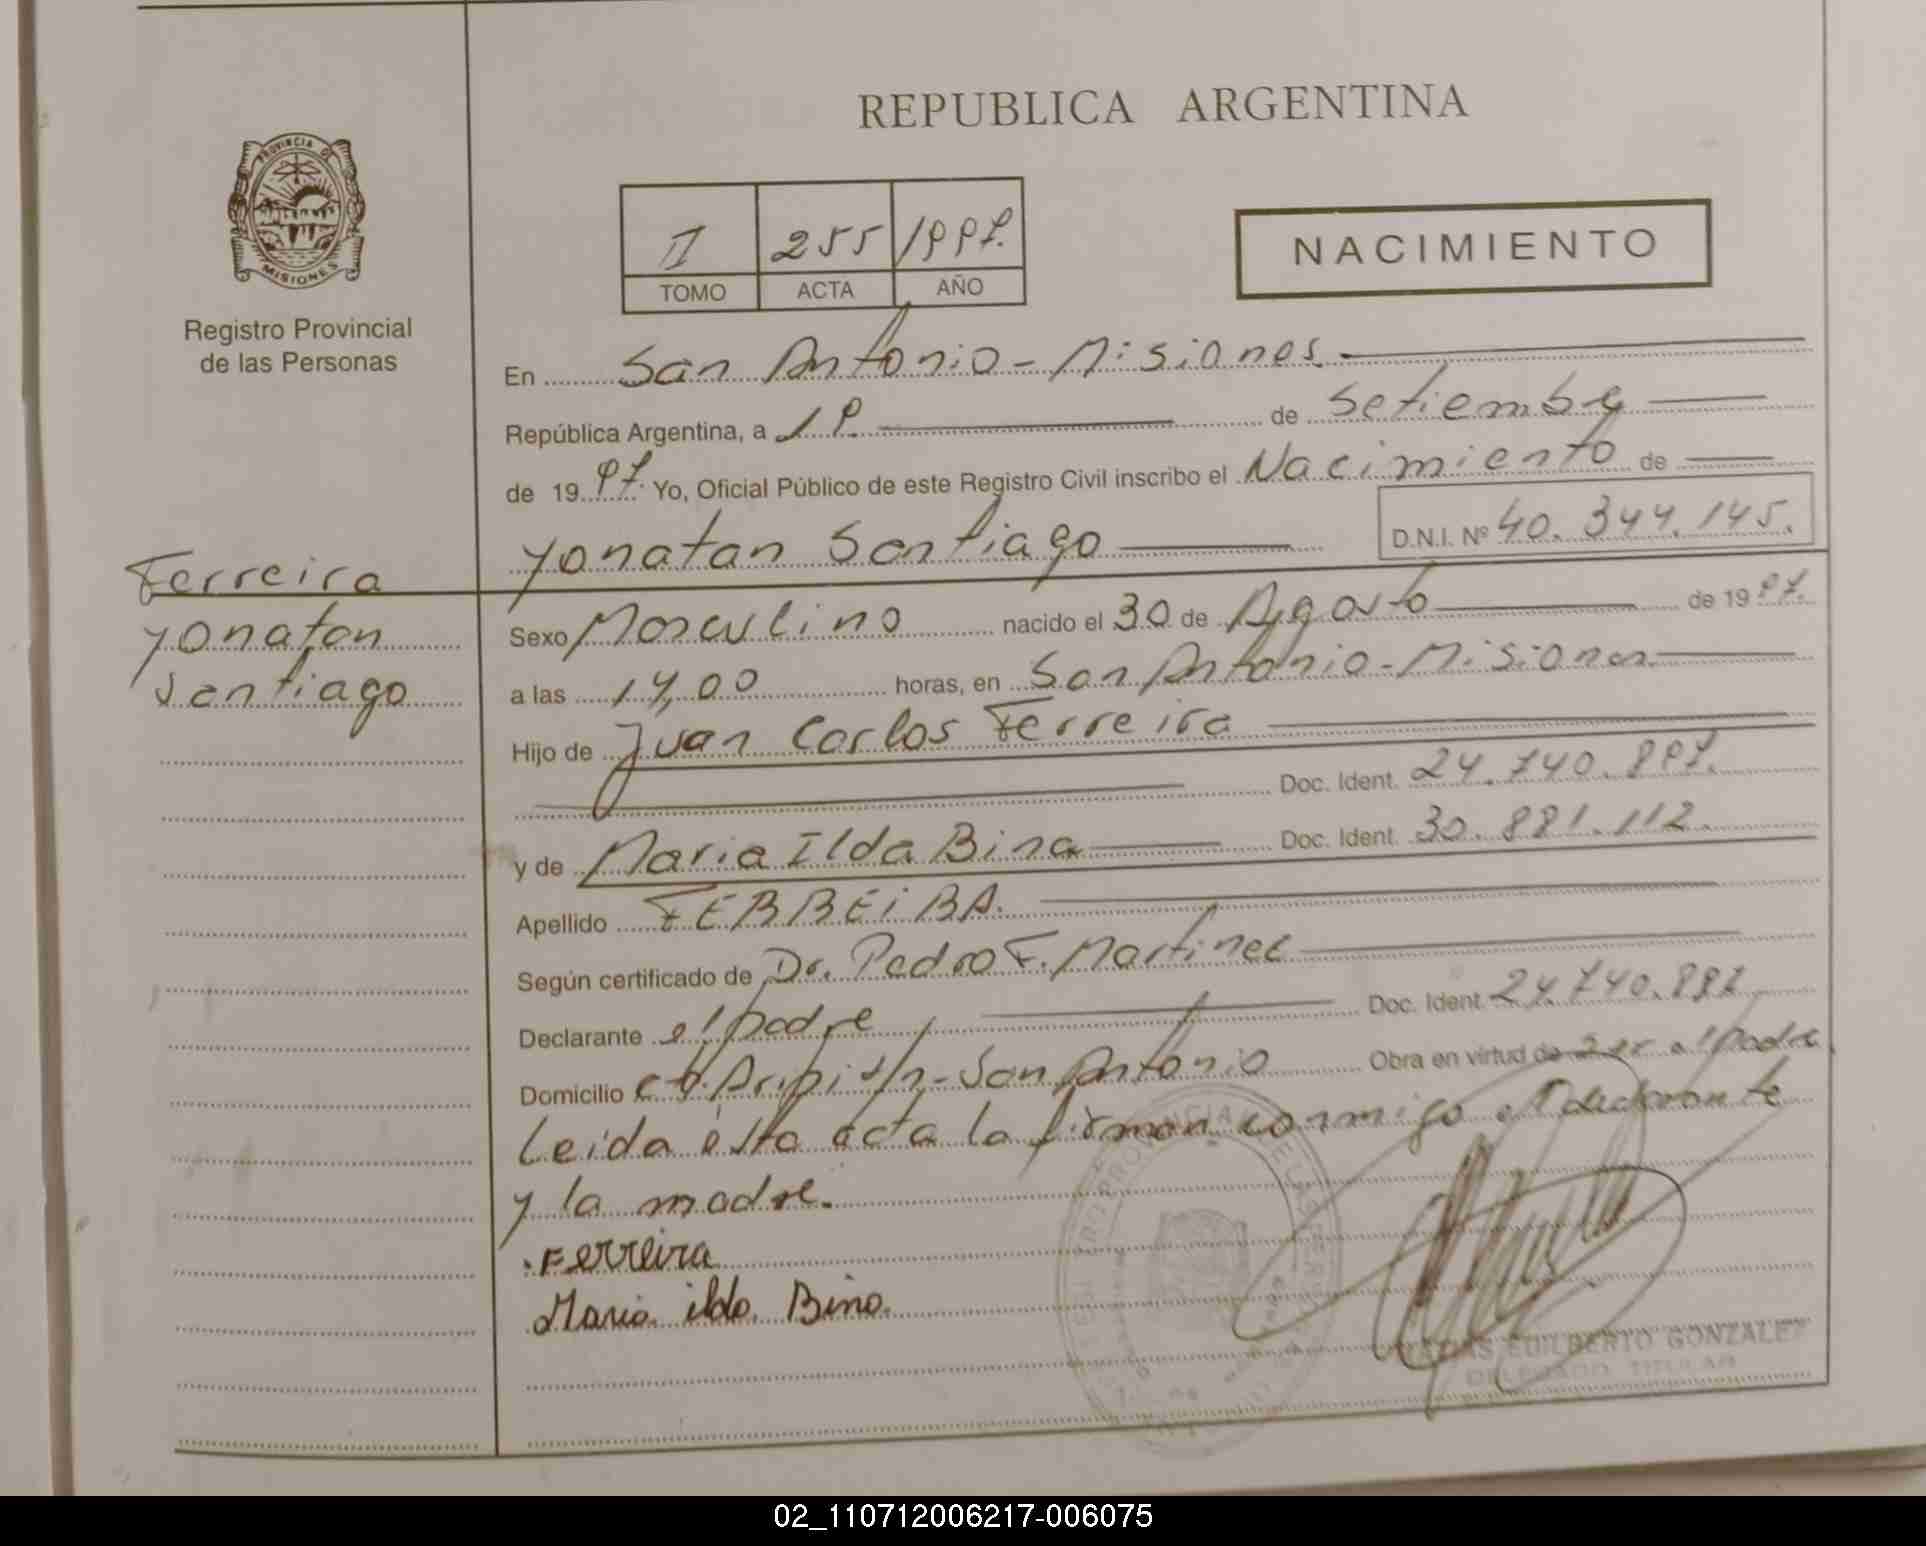 REPUBLICA ARGENTINA
PROVINCIA DE
MISIONES
Registro Provincial
de las Personas
II 255 1997.
TOMO ACTA AÑO
NACIMIENTO
En San Antonio - Misiones.
República Argentina, a 19. de Setiembre
de 1997. Yo, Oficial Público de este Registro Civil inscribo el Nacimiento de
Yonatan Santiago D.N.I. Nº 40.344.145.
Ferreira
Yonatan
Santiago
Sexo Masculino nacido el 30 de Agosto de 1997.
a las 14,00 horas, en San Antonio - Misiones.
Hijo de Juan Carlos Ferreira
Doc. Ident. 24.740.897.
y de Maria Ilda Bina Doc. Ident. 30.881.112.
Apellido FERREIRA.
Según certificado de Dr. Pedro F. Martinez
Declarante el padre Doc. Ident. 24.740.897
Domicilio San Antonio Obra en virtud de ser el padre.
Leida esta acta la firman conmigo el declarante
y la madre.
Ferreira
Maria ilda Bina.
GONZALEZ
DELEGADO TITULAR
02_110712006217-006075